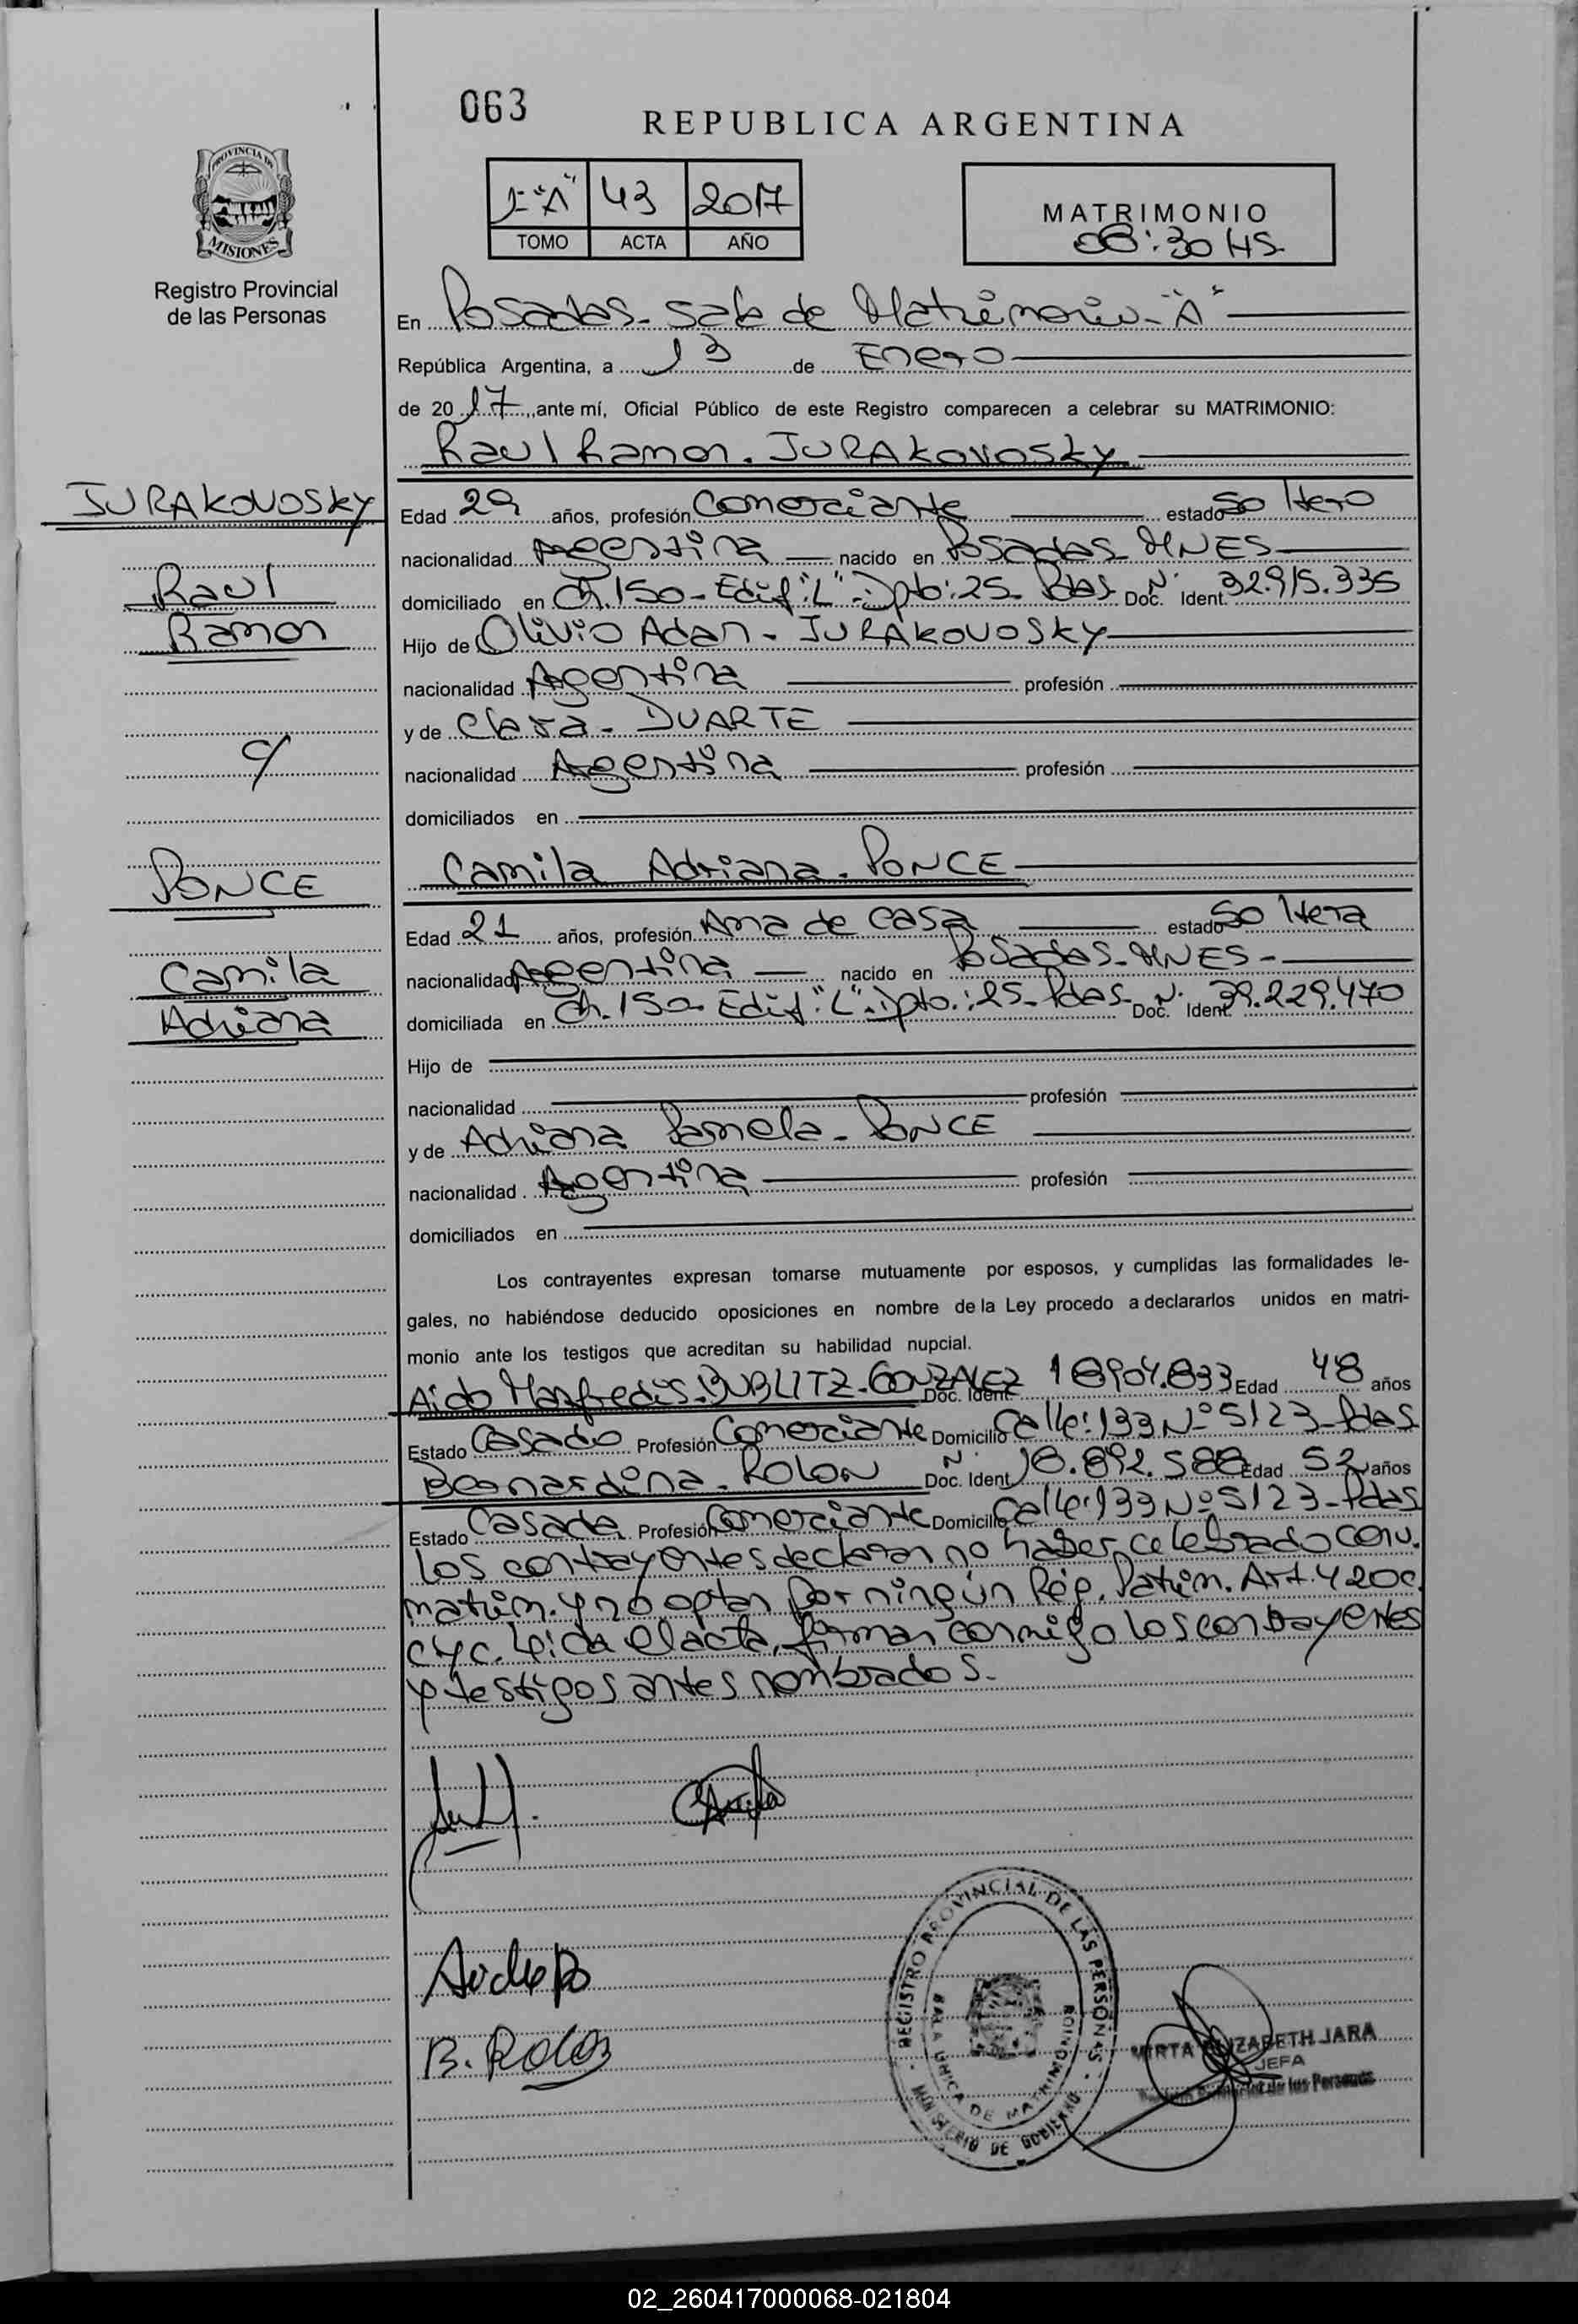 063
REPUBLICA ARGENTINA
1-"A" 43 2017
TOMO ACTA AÑO
MATRIMONIO
08:30 HS
PROVINCIA DE
MISIONES
Registro Provincial
de las Personas
En Posadas - Sala de Matrimonio - "A"
República Argentina, a 13 de Enero
de 2017, ante mí, Oficial Público de este Registro comparecen a celebrar su MATRIMONIO:
Raul Ramon. JURAKOVOSKY
JURAKOVOSKY
Raul
Ramon
c/
PONCE
Camila
Adriana
Edad 29 años, profesión Comerciante estado Soltero
nacionalidad Argentina nacido en Posadas - MNES
domiciliado en Ch. 150 - Edif: "L" - Dpto: 25 - Pdas. Doc. Ident. N° 32.915.335
Hijo de Olivio Adan - JURAKOVOSKY
nacionalidad Argentina profesión
y de Clara - DUARTE
nacionalidad Argentina profesión
domiciliados en
Camila Adriana - PONCE
Edad 21 años, profesión Ama de Casa estado Soltera
nacionalidad Argentina nacido en Posadas - MNES -
domiciliada en Ch. 150 - Edif. "L" - Dpto.: 25 - Pdas - Doc. Ident. N° 39.229.470
Hijo de
nacionalidad profesión
y de Adriana Pamela - PONCE
nacionalidad Argentina profesión
domiciliados en
Los contrayentes expresan tomarse mutuamente por esposos, y cumplidas las formalidades le-
gales, no habiéndose deducido oposiciones en nombre de la Ley procedo a declararlos unidos en matri-
monio ante los testigos que acreditan su habilidad nupcial.
Aido Manfredis - BUBLITZ - GONZALEZ Doc. Ident. 18904.833 Edad 48 años
Estado Casado Profesión Comerciante Domicilio Calle: 133 N° 5123 - Pdas
Bernardina - ROLON Doc. Ident. N° 18.892.588 Edad 52 años
Estado Casada Profesión Comerciante Domicilio Calle: 133 N° 5123 - Pdas
Los contrayentes declaran no haber celebrado conv.
matrim. y no optan por ningún Rég. Patrim. Art. 420 c.
CYC. Leída el acta, firman conmigo los contrayentes
y testigos antes nombrados.-
B. Rolon
REGISTRO PROVINCIAL DE LAS PERSONAS
SALA UNICA DE MATRIMONIOS
MINISTERIO DE GOBIERNO
MIRTA ELIZABETH JARA
JEFA
Registro Provincial de las Personas
02_260417000068-021804